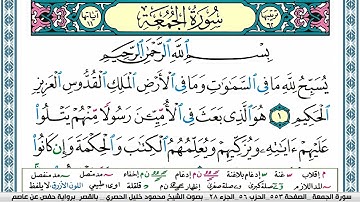 سُورَةُ الجُمُعَةِ
بِسْمِ اللَّهِ الرَّحْمَٰنِ الرَّحِيمِ
يُسَبِّحُ لِلَّهِ مَا فِي السَّمَٰوَٰتِ وَمَا فِي الْأَرْضِ الْمَلِكِ الْقُدُّوسِ الْعَزِيزِ
الْحَكِيمِ ١ هُوَ الَّذِي بَعَثَ فِي الْأُمِّيِّينَ رَسُولًا مِّنْهُمْ يَتْلُوا
عَلَيْهِمْ ءَايَٰتِهِ وَيُزَكِّيهِمْ وَيُعَلِّمُهُمُ الْكِتَٰبَ وَالْحِكْمَةَ وَإِن كَانُوا
سورة الجمعة الصفحة ٥٥٣ الحزب ٥٦ الجزء ٢٨ بصوت الشيخ محمود خليل الحصري بالقصر برواية حفص عن عاصم